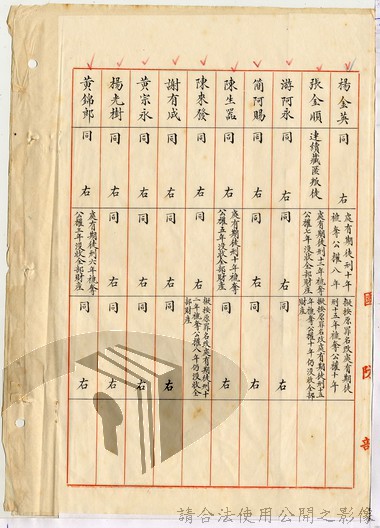 楊金英 同右 處有期徒刑十年褫奪公權八年 擬按原罪名改處有期徒刑十五年褫奪公權十年
張金順 連續藏匿叛徒 處有期徒刑十二年褫奪公權七年沒收全部財產 擬按原罪名改處有期徒刑十五年褫奪公權十年仍沒收全部財產
游阿永 同右 同右 同右
簡阿賜 同右 同右 同右
陳生器 同右 處有期徒刑十年褫奪公權五年沒收全部財產 同右
陳來發 同右 同右 擬按原罪名改處有期徒刑十一年褫奪公權八年仍沒收全部財產
謝有成 同右 同右 同右
黃宗永 同右 同右 同右
楊光樹 同右 同右 同右
黃錦郎 同右 處有期徒刑六年褫奪公權三年沒收全部財產 同右
國防部
請合法使用公開之影像